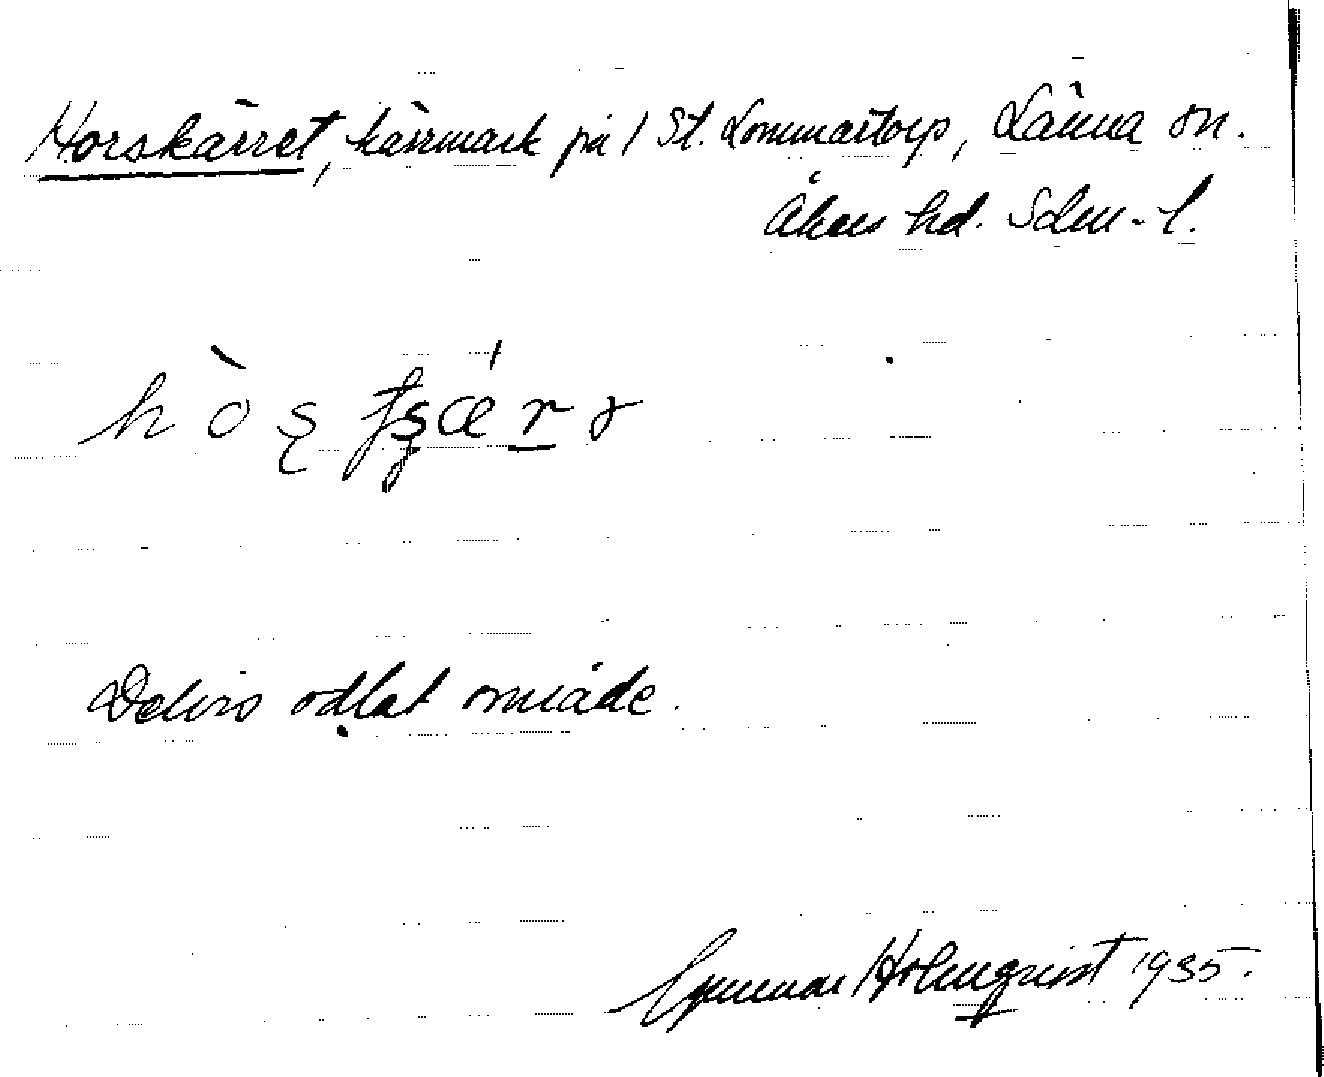 Horskärret, kärrmark på / St. Lommartorp, Länna sn.
Åkers hd. Sdm-l.
Delvis odlat område.
Gunnar Holmqvist 1935.